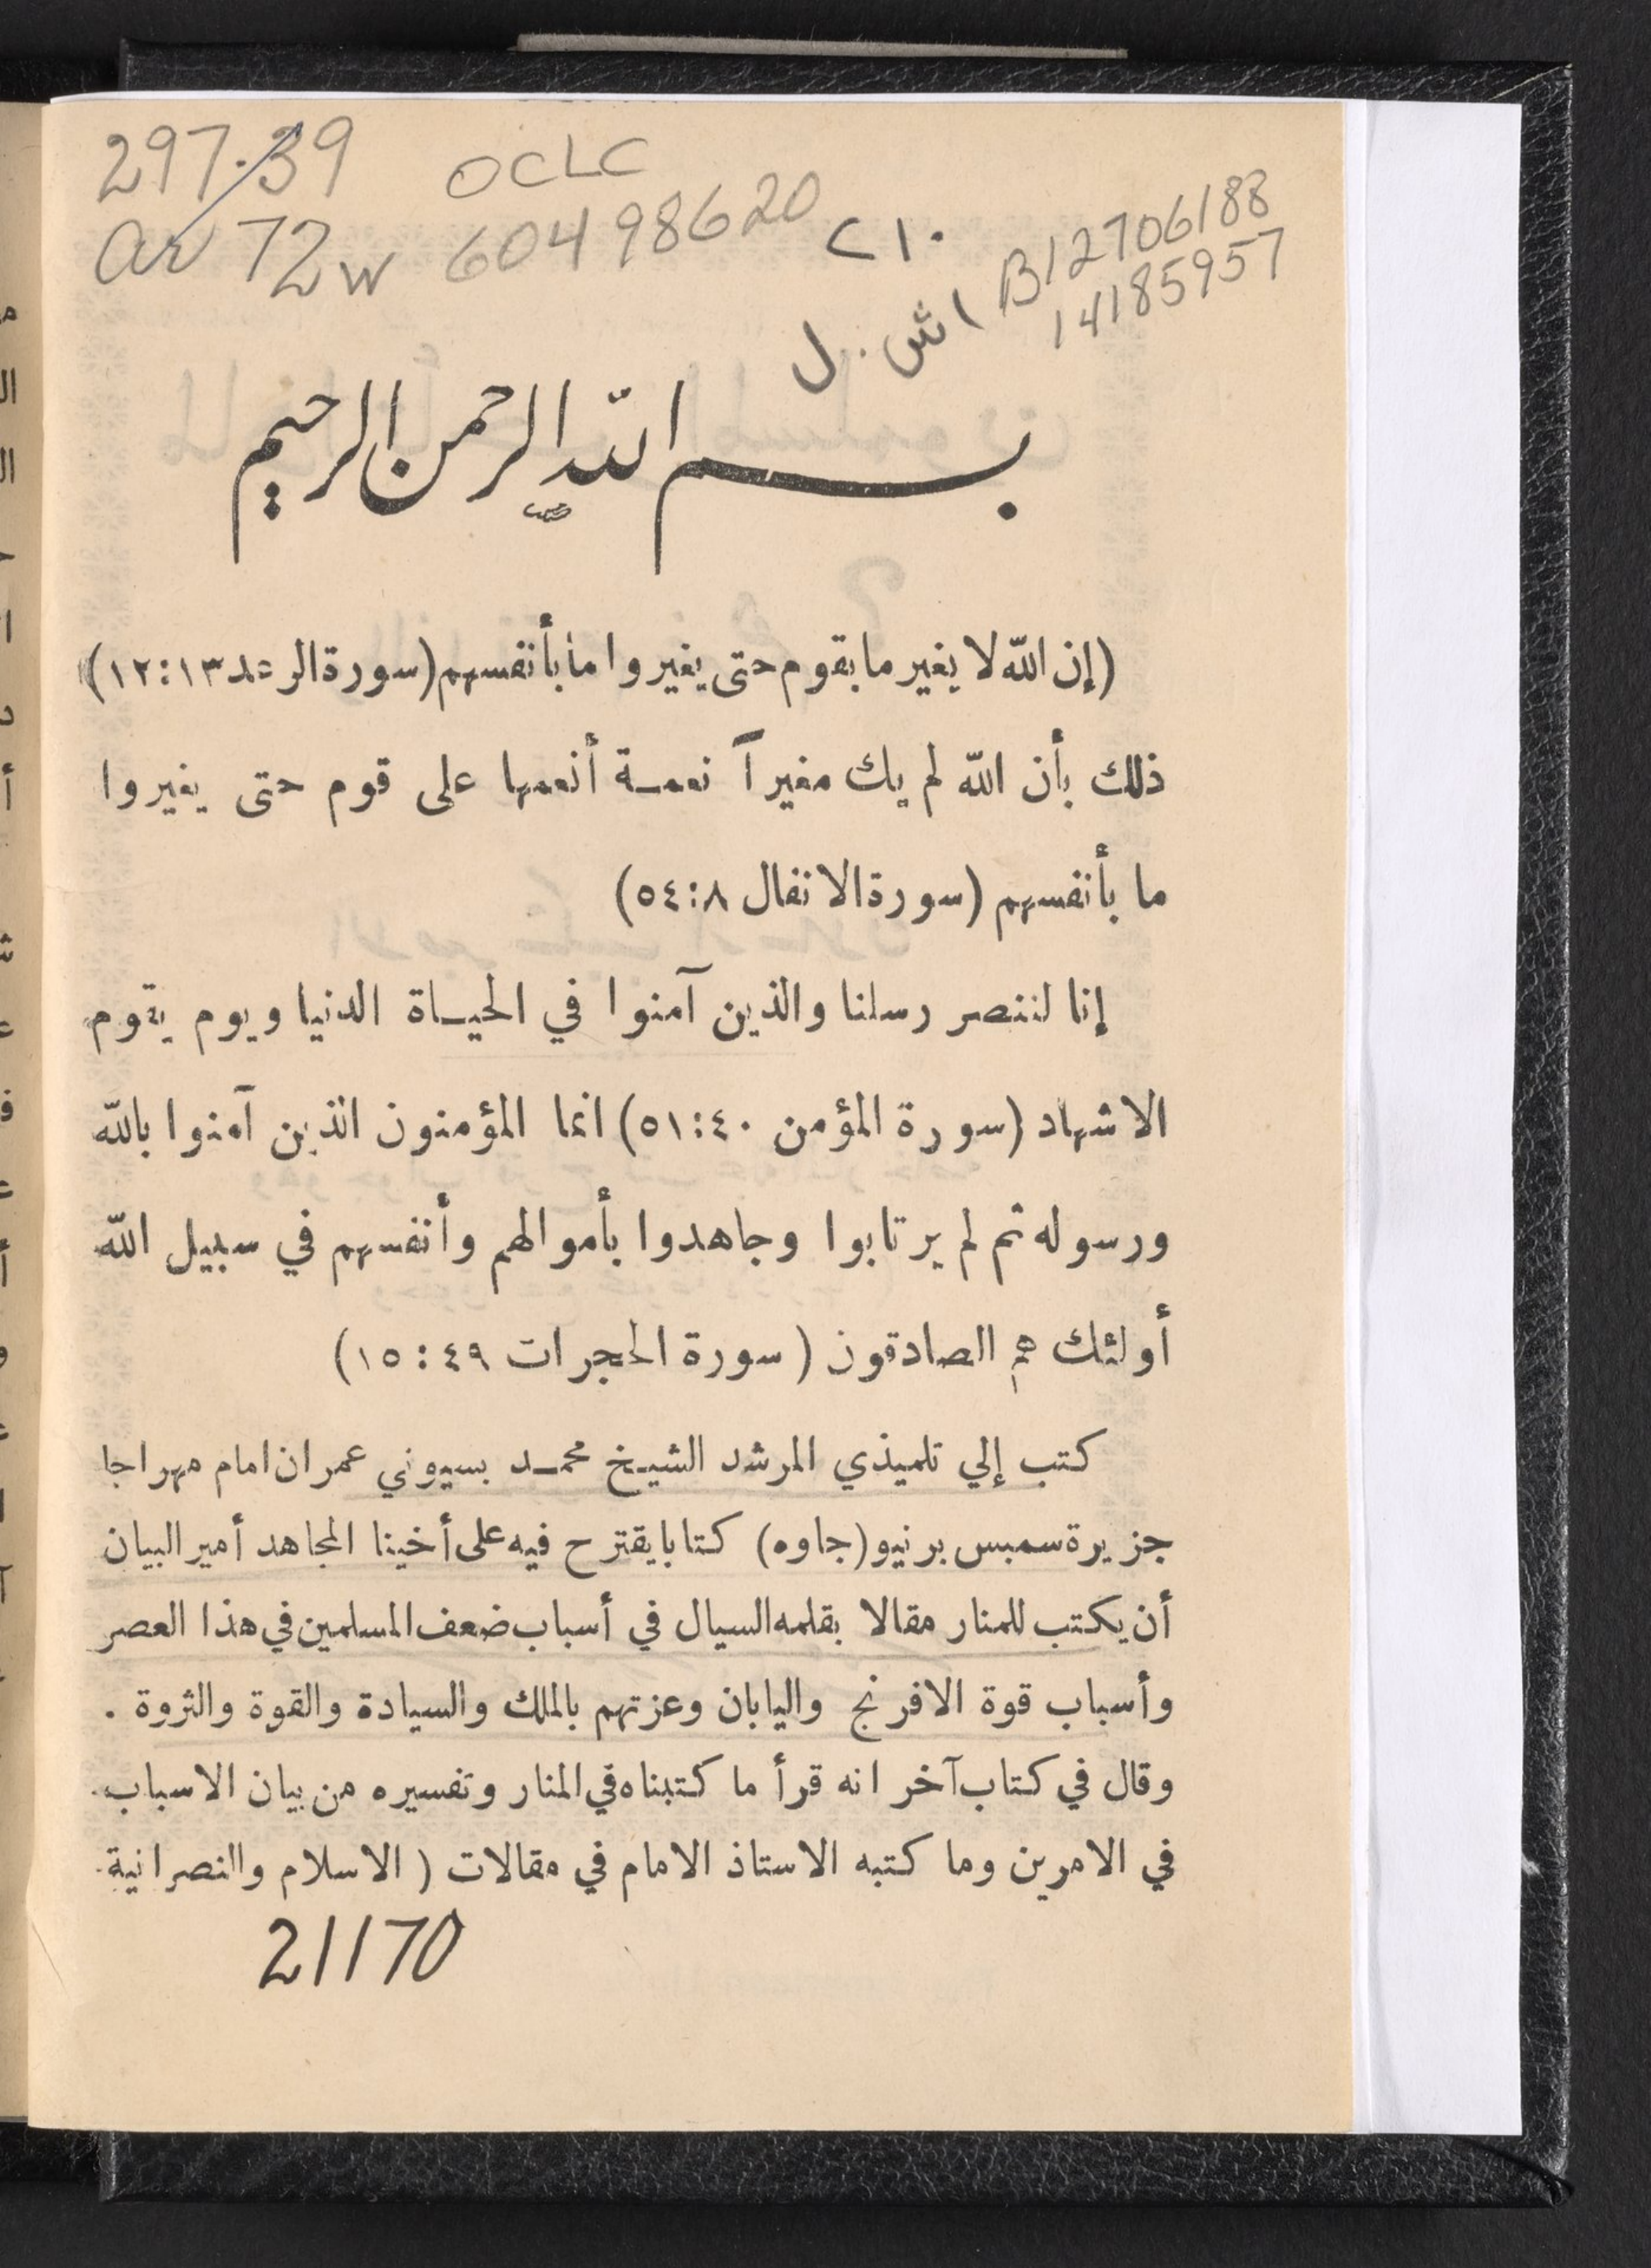 297.39
OCLC
ar 72w
60498620
٢١٠
B12706188
14185957
اش . ل
بسم الله الرحمن الرحيم
(إن الله لا يغير ما بقوم حتى يغيروا ما بأنفسهم (سورة الرعد ١٣:١٢)
ذلك بأن الله لم يك مغيرآ نعمة أنعمها على قوم حتى يغيروا
ما بأنفسهم (سورة الانفال ٨:٥٤)
إنا لننصر رسلنا والذين آمنوا في الحياة الدنيا ويوم يقوم
الاشهاد (سورة المؤمن ٤٠:٥١) انما المؤمنون الذين آمنوا بالله
ورسوله ثم لم يرتابوا وجاهدوا بأموالهم وأنفسهم في سبيل الله
أولئك هم الصادقون ( سورة الحجرات ٤٩:١٥)
كتب إلي تلميذي المرشد الشيخ محمد بسيوني عمران امام مهراجا
جزيرة سمبس برنيو (جاوه) كتابا يقترح فيه على أخينا المجاهد أمير البيان
أن يكتب للمنار مقالا بقلمه السيال في أسباب ضعف المسلمين في هذا العصر
وأسباب قوة الافرنج واليابان وعزتهم بالملك والسيادة والقوة والثروة .
وقال في كتاب آخر انه قرأ ما كتبناه في المنار وتفسيره من بيان الاسباب
في الامرين وما كتبه الاستاذ الامام في مقالات ( الاسلام والنصرانية
21170